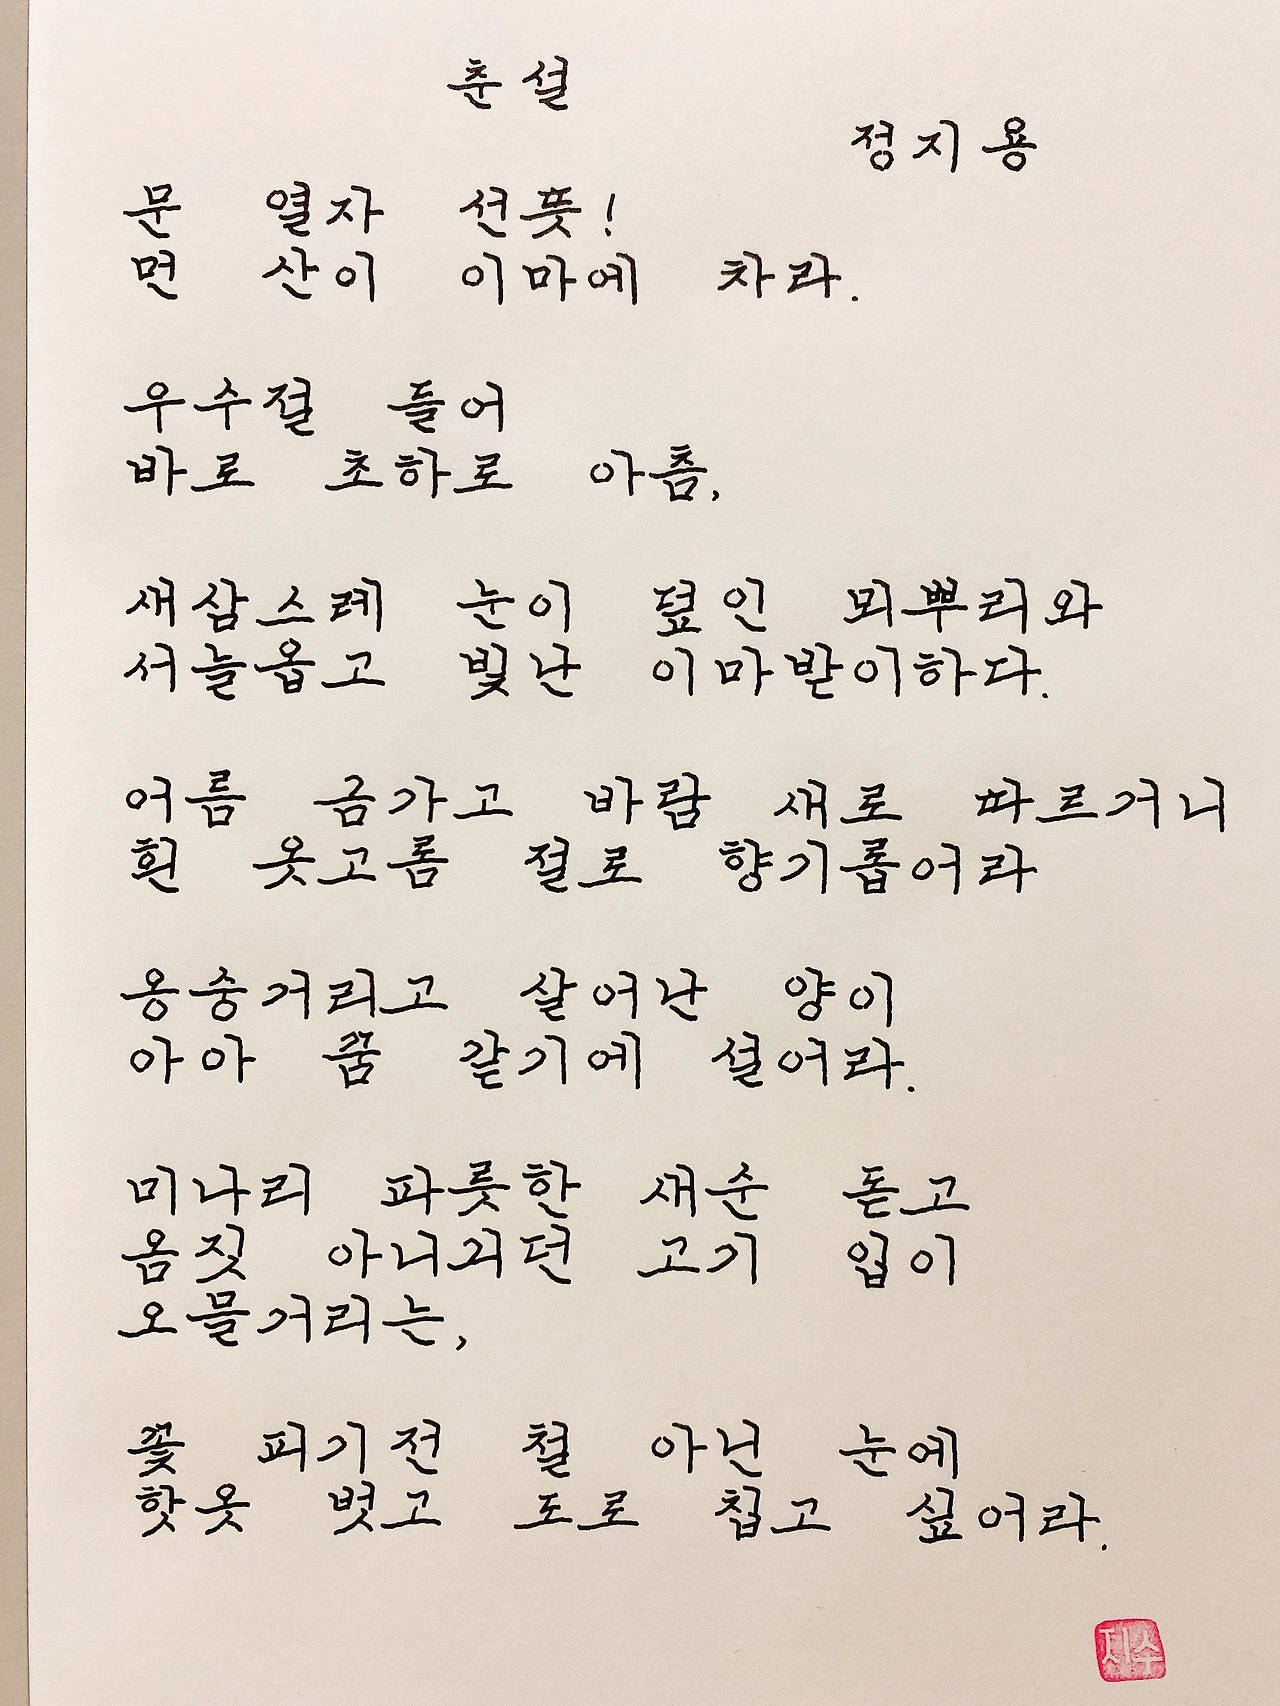 춘설
정지용
문 열자 선뜻!
먼 산이 이마에 차라.
우수절 들어
바로 초하로 아츰,
새삼스레 눈이 덮인 뫼뿌리와
서늘옵고 빛난 이마받이하다.
어름 금가고 바람 새로 따르거니
흰 옷고롬 절로 향기롭어라
옹숭거리고 살어난 양이
아아 꿈 같기에 설어라.
미나리 파릇한 새순 돋고
옴짓 아니긔던 고기 입이
오믈거리는,
꽃 피기전 철 아닌 눈에
핫옷 벗고 도로 칩고 싶어라.
지수